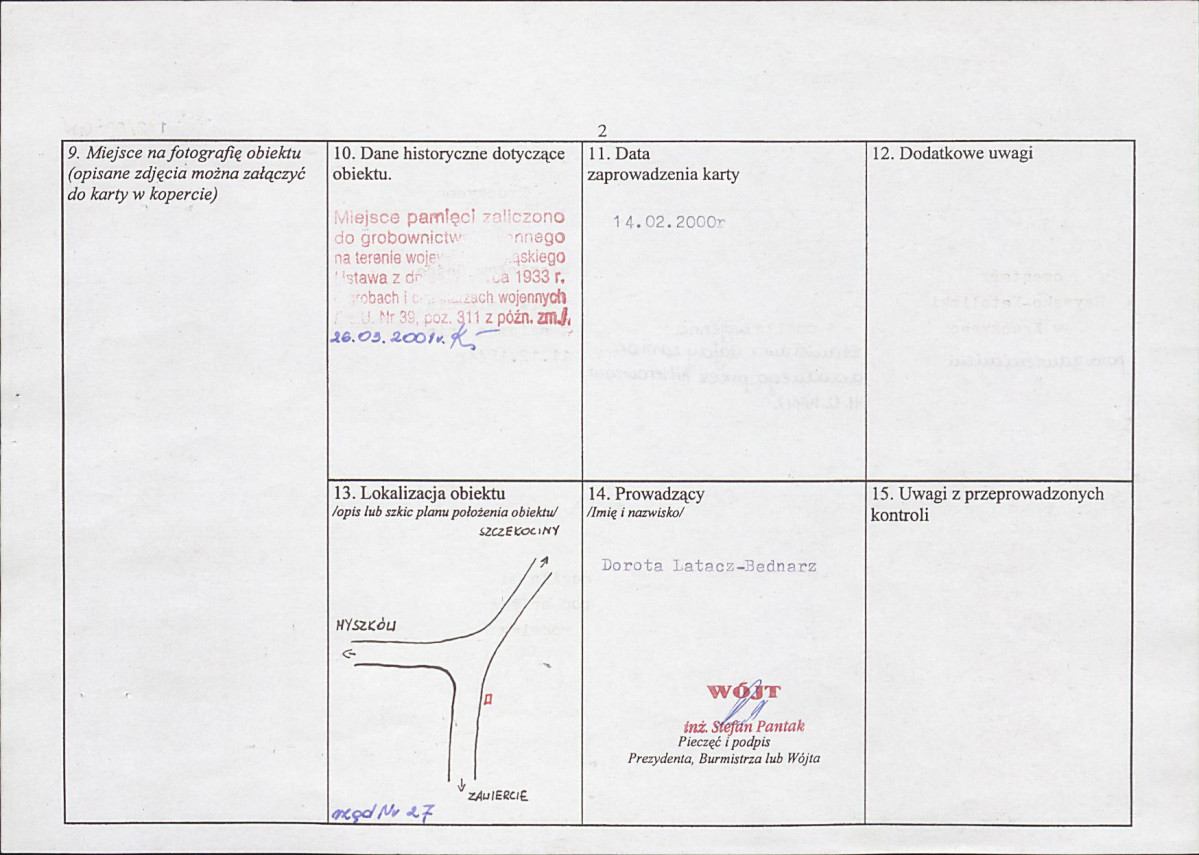 2
9. Miejsce na fotografię obiektu
(opisane zdjęcia można załączyć
do karty w kopercie)
10. Dane historyczne dotyczące
obiektu.
Miejsce pamięci zaliczono
do
na terenie
1933 r.
wojennych
Nr 39, poz. 311 z późn. zm./.
26.03.2001r.
11. Data
zaprowadzenia karty
14.02.2000r
12. Dodatkowe uwagi
13. Lokalizacja obiektu
/opis lub szkic planu położenia obiektu/
SZCZEKOCINY
MYSZKÓW
ZAWIERCIE
Nr 27
14. Prowadzący
/Imię i nazwisko/
Dorota Latacz-Bednarz
WÓJT
inż. Stefan Pantak
Pieczęć i podpis
Prezydenta, Burmistrza lub Wójta
15. Uwagi z przeprowadzonych
kontroli